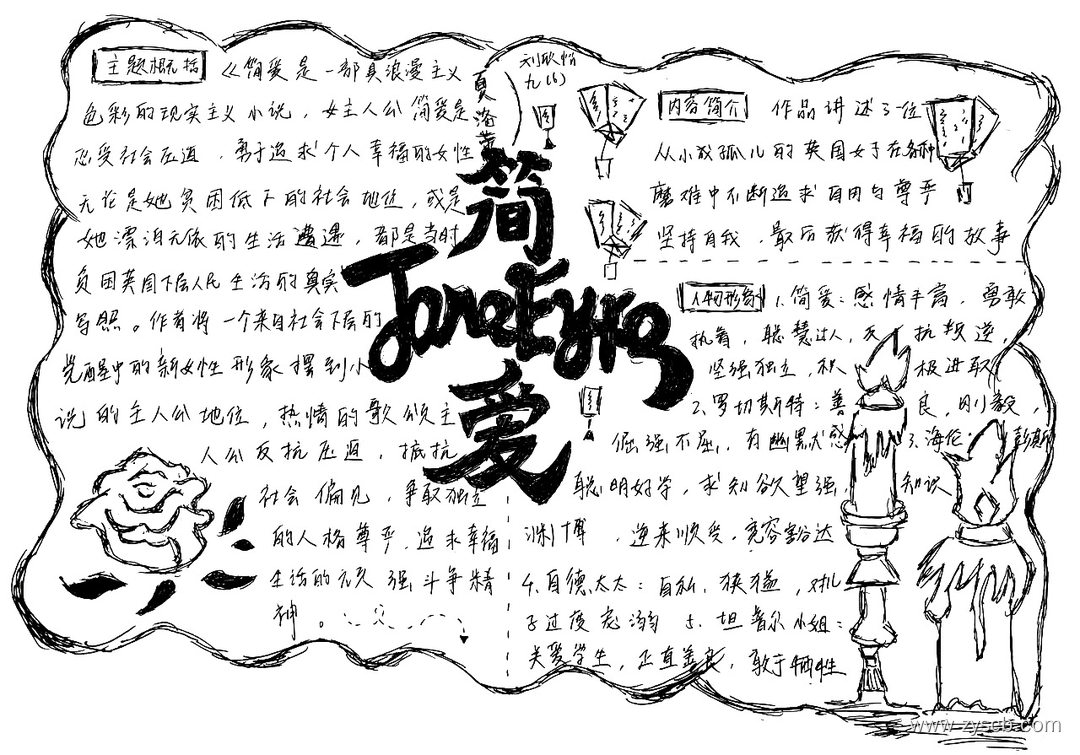 主题概括
《简爱是一部具浪漫主义
色彩的现实主义小说，女主人公简爱是
忍受社会压迫，勇于追求个人幸福的女性
无论是她贫困低下的社会地位，或是
她漂泊无依的生活遭遇，都是当时
贫困英国下层人民生活的真实
写照。作者将一个来自社会下层的
觉醒中的新女性形象摆到小
说的主人公地位，热情的歌颂主
人公反抗压迫，抵抗
社会偏见，争取独立
的人格尊严，追求幸福
生活的顽强斗争精
神。
九(6)
夏洛蒂
简
Jane Eyre
爱
内容简介
作品讲述了一位
从小成孤儿的英国女子在各种
磨难中不断追求自由与尊严
坚持自我，最后获得幸福的故事
人物形象
1.简爱：感情丰富，勇敢
执着，聪慧过人，反抗叛逆，
坚强独立，积极进取
2.罗切斯特：善良，刚毅，
倔强不屈，有幽默感
3.海伦·彭斯
聪明好学，求知欲望强，知识
渊博，逆来顺受，宽容豁达
4.自德太太：自私，狭隘，对儿
子过度宠溺
5.坦普尔小姐：
关爱学生，正直善良，敢于牺牲
www.zyscb.com